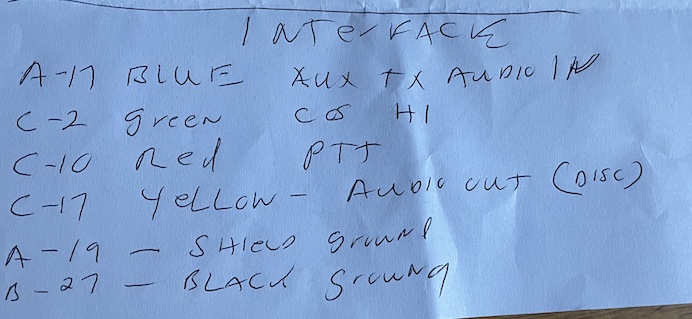 INTerFACE
A-17 BLUE AUX TX AUDIO IN
C-2 green COS HI
C-10 Red PTT
C-17 YeLLOW - AUDIO OUT (DISC)
A-19 - SHIELD ground
B-27 - BLACK Ground